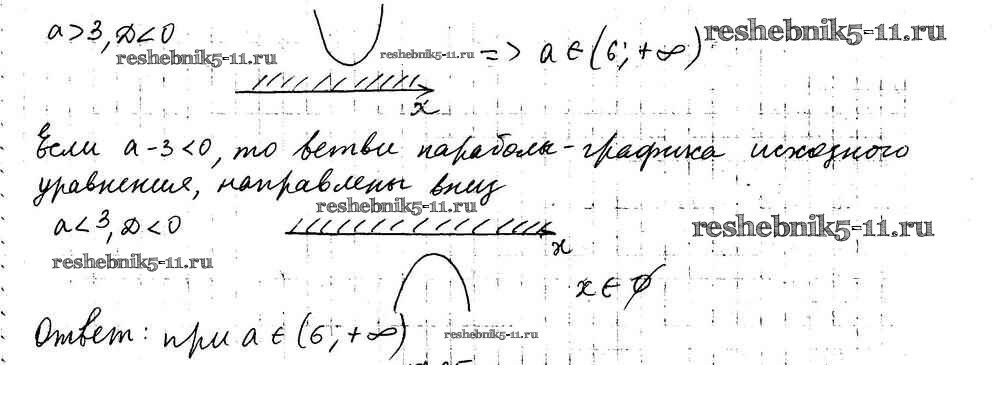 a>3, D<0
reshebnik5-11.ru
reshebnik5-11.ru
=> a ∈ (6; +∞)
reshebnik5-11.ru
x
Если a-3<0, то ветви параболы-графика исходного
уравнения, направлены вниз
reshebnik5-11.ru
a<3, D<0
reshebnik5-11.ru
x
reshebnik5-11.ru
x ∈ ∅
Ответ: при a ∈ (6; +∞)
reshebnik5-11.ru